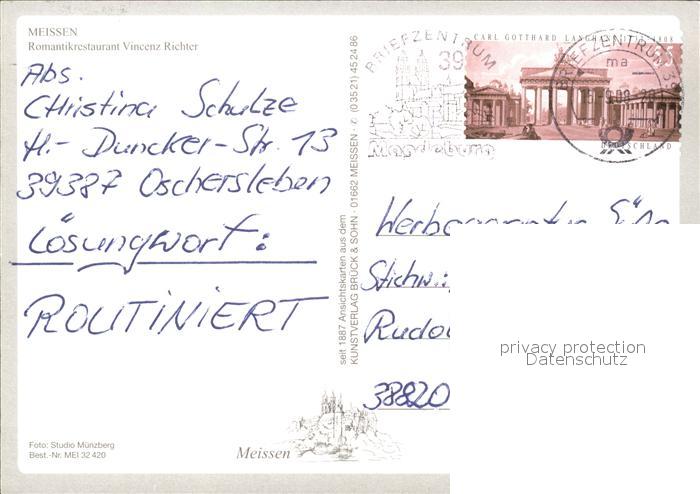 MEISSEN
Romantikrestaurant Vincenz Richter
Abs.
Christina Schulze
H.- Duncker-Str. 13
39387 Oschersleben
Lösungwort:
ROUTINIERT
Foto: Studio Münzberg
Best.-Nr. MEI 32 420
Meissen
seit 1887 Ansichtskarten aus dem
KUNSTVERLAG BRÜCK & SOHN · 01662 MEISSEN · ✆ (03521) 45 24 86
BRIEFZENTRUM
39
Magdeburg
CARL GOTTHARD 1808
55
DEUTSCHLAND
BRIEFZENTRUM 39
ma
Stichw.:
38820
privacy protection
Datenschutz